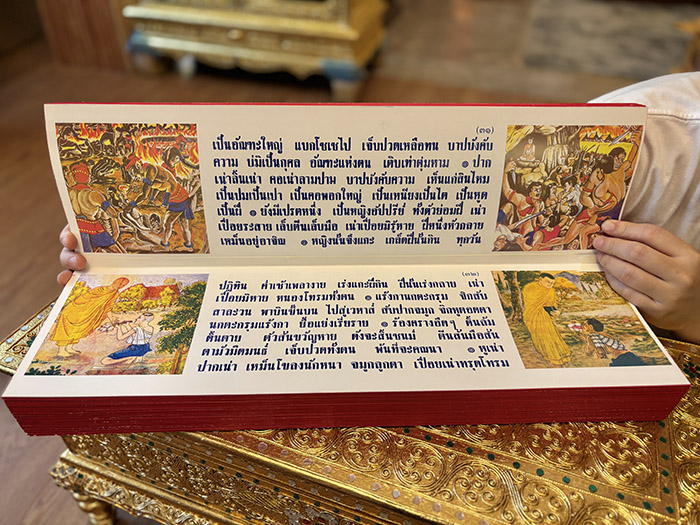 (๓๑)
เป็นอัณฑะใหญ่ แบกโซเซไป เจ็บปวดเหลือทน บาปบังคับ
ความ บมิเป็นกุศล อัณฑะแห่งตน เติบเท่าตุ่มหาม ๏ ปาก
เน่าลิ้นเน่า คอเน่าลามปาม บาปบังคับความ เห็นแก่สินไหม
เป็นปมเป็นเปา เป็นคอพอกใหญ่ เป็นเหนียงเป็นไต เป็นหูด
เป็นฝี ๏ ยังมีเปรตหนึ่ง เป็นหญิงอัปปรีย์ ทั้งตัวย่อมฝี เน่า
เปื่อยระสาย เล็บตีนเล็บมือ เน่าเปื่อยมิรู้หาย ฝีหนึ่งหัวกลาย
เหม็นอยู่อาจิณ ๏ หญิงนั้นจึงแกะ เกล็ดฝีนั้นกิน ทุกวัน
(๓๒)
ปฏิทิน ค่ำเช้าเพลางาย เร่งแกะฝีกิน ฝีนั้นเร่งกลาย เน่า
เปื่อยมิหาย หนองโทรมทั้งตน ๏ แร้งกานกตะกรุม จิกสับ
สาละวน พาบินขึ้นบน ไปสู่เวหาส์ สับปากจมูก จิกหูตอดตา
นกตะกรุมแร้งกา ยื้อแย่งเรียราย ๏ ร้องครางอืดา ดิ้นล้ม
ดิ้นตาย ตัวสั่นขวัญหาย ดังจะสิ้นชนม์ ตีนสั้นมือสั้น
ตามัวมืดมนธ์ เจ็บปวดทั้งตน พ้นที่จะคณนา ๏ หูเน่า
ปากเน่า เหม็นโขลงนักหนา จมูกลูกตา เปื่อยเน่าทรุดโทรม